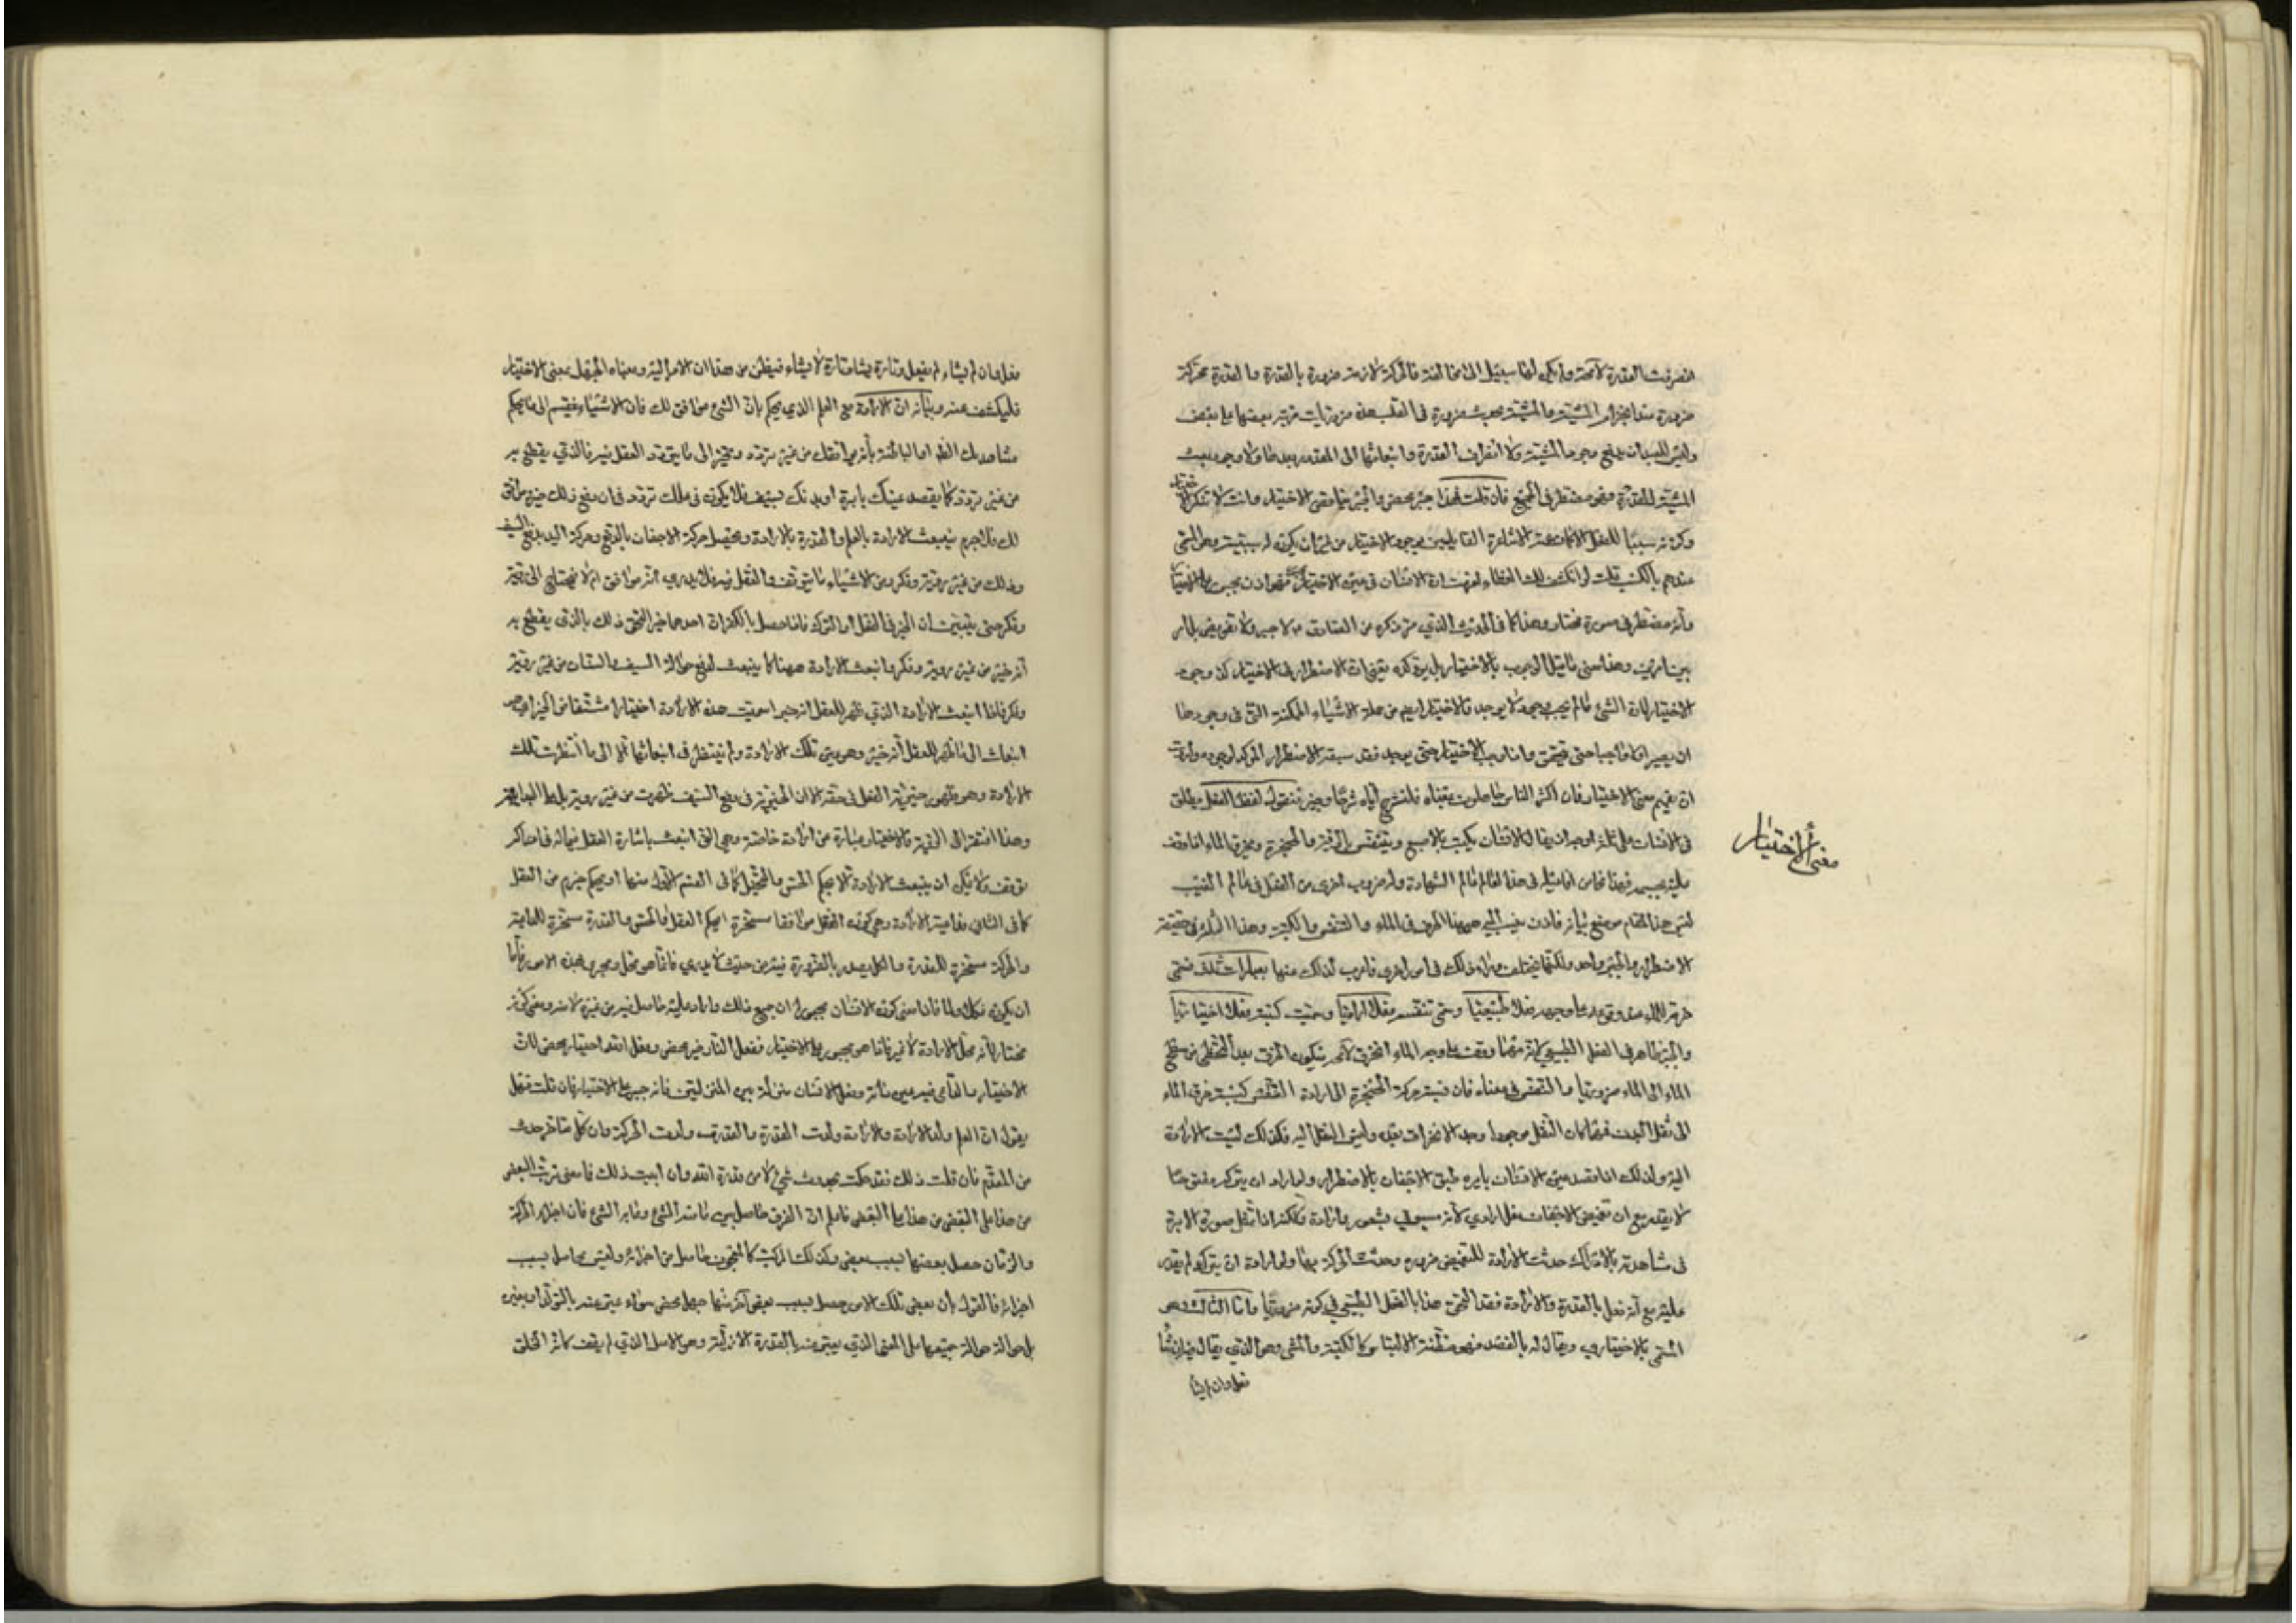 انصرفت القدرة لا محالة ولم يكن لها سبيل الى المخالفة فالحركة لازمة ضرورة بالقدرة والقدرة محركة
ضرورة عند انجزام المشية والمشية تحدث ضرورة فى القلب فهذه ضروريات مرتبة بعضها على بعض
وليس للعبد ان يدفع وجود المشية ولا انصراف القدرة وانبعاثها الى المقدور بعدها ولا وجود بعث
المشية للقدرة فهو مضطر فى الجميع فان قلت فهذا جبر محض والجبر يناقض الاختيار وانت لا تنكر الاختيار
وكونه سببا للفعل
عندهم بالكسب قلت لو انكشف لك الغطاء لعرفت ان الانسان فى عين الاختيار مجبور فهو اذن مجبور على الاختيار
وأنه مضطر فى صورة مختار وهذا كما فى الحديث الذي مر ذكره عن الصادق ع لا جبر ولا تفويض بل امر
بين امرين وهذا معنى ما قيل الوجوب بالاختيار بل يؤكده يعنى ان الاضطرار فى الاختيار كذا وجوب
الاختيار لان الشئ ما لم يجب وجوده لا يوجد فالاختيار ايضا من جملة الاشياء الممكنة التى فى وجودها
ان يصير اولا واجبا حتى يتحقق واذا وجب الاختيار حتى يوجد فقد سبقه الاضطرار المؤكد لوجوده واردت
ان تفهم معنى الاختيار فان أكثر الناس جاهلون بمعناه فلنشرح اياه شرحا وجيزا فنقول لفظ الفعل يطلق
فى الانسان على ثلاثة اوجه اذ يقال الانسان يكتب بالاصبع ويتنفس بالرئة والحنجرة ويخرق الماء اذا وقف
عليه بجسمه فهذا
ليس هذا المقام موضع بيانه فاذن ينسب اليه ههنا الخرق فى الماء والتنفس والكتبة وهذا الثلاثة فى حقيقة
الاضطرار والجبر واحد ولكنها تختلف وراء ذلك فى امور اخرى فاعرب لذلك عنها بعبارات ثلاث فنسمى
خرقه للماء عند وقوعه على وجهه فعلا طبيعيا ونسمى تنفسه فعلا اراديا ونسمى كتبه فعلا اختياريا
والجبر ظاهر فى الفعل الطبيعى لانه مهما وقف على وجه الماء انخرق لا محالة فيكون الخرق بعد التخطى من سطح
الماء الى الماء ضروريا والتنفس فى معناه فان نسبة حركة الحنجرة الى ارادة التنفس كنسبة خرق الماء
الى ثقل البدن فمهما كان الثقل موجودا وجد الانخراق بعده وليس الثقل اليه فكذلك ليست الارادة
اليه ولذلك اذا قصد عين الانسان بابرة طبق الاجفان بالاضطرار ولو اراد ان يتركه مفتوحا
لا يقدر مع ان تغميض الاجفان فعل ارادي لانه مسبوق بشعور وارادة ولكنه اذا تمثل صورة الابرة
فى مشاهدته بالادراك حدثت الارادة للتغميض ضرورة وحدثت الحركة بها ولو اراد ان يترك لم يقدر
عليه مع أنه فعل بالقدرة والارادة فقد التحق هذا بالفعل الطبيعى فى كونه ضروريا واما الثالث وهو
المسمى بالاختيارى ويقال له بالقصد فهو مظنة الالتباس كالكتبة والمشى وهو الذي يقال فيه ان شاء
فعل وان لم يشأ
معنى الاختيار
فعل وان لم يشاء لم يفعل وتارة يشاء وتارة لا يشاء فيظن من هذا ان الامر اليه وهذا للجهل بمعنى الاختيار
فليكشف عنه وبيانه ان الارادة تبع العلم الذي يحكم بان الشئ موافق لك فان الاشياء ينقسم الى ما يحكم
مشاهدتك الظاهرة او الباطنة بأنه يوافقك من غير تردد وتحير الى ما يتردد العقل فيه فالذي يقطع به
من غير تردد كما يقصد عينك بابرة او بدنك بسيف فلا يكون فى علمك تردد فى ان دفع ذلك خير موافق
لك فلا جرم ينبعث الارادة بالعلم والقدرة بالارادة ويحصل حركة الاجفان بالدفع وحركة اليد بدفع السيف
وذلك من غير روية وفكر ومن الاشياء ما يتوقف والعقل فيه فلا يدري أنه موافق ام لا فيحتاج الى روية
وفكر حتى يتبين ان الخير فى الفعل او الترك فاذا حصل بالفكر ان احدهما خير التحق ذلك بالذى يقطع به
أنه خير من غير روية وفكر وانبعث الارادة ههنا كما ينبعث لدفع حوالة السيف والسنان من غير روية
وفكر فاذا انبعث الارادة الذي ظهر للعقل انه خير سميت هذه الارادة اختيارا مشتقا من الخير اي هو
انبعاث الى ما ظهر للعقل أنه خير وهو عين تلك الارادة ولم ينتظر فى انبعاثها الا الى ما انتظرت تلك
الارادة وهو ظهور خيرية الفعل فى حقه الا ان الخيرية فى دفع السيف ظهرت من غير روية بل على البداهة
وهذا افتقر الى الروية فالاختيار عبارة عن ارادة خاصة وهي التى انبعث باشارة العقل فيما له فى ادراكه
توقف ولا يمكن ان ينبعث الارادة الا بحكم الحس والتخيل كما فى القسم الاول منها او بحكم جزم من العقل
كما فى الثانى فداعية الارادة وهي كون الفعل موافقا مسخرة لحكم العقل والحس والقدرة مسخرة للداعية
والحركة مسخرة للقدرة والكل يصدر بالضرورة فيه من حيث لا يدري فانما هو محل ومجرى لهذه الامور فأما
ان يكون فكلا ولما فاذا معنى كون الانسان مجبورا ان جميع ذلك وارادة عليه حاصل فيه من غيره لا منه ومعنى كونه
مختارا أنه محل لارادة لا غير فاذا هو مجبور على الاختيار ففعل النار جبر محض وفعل الله اختيار محض
الاختيار وفعل الانسان منزلة بين المنزلتين فانه جبر على الاختيار فان قلت فهل
يقول ان العلم ولد الارادة والارادة ولدت القدرة والقدرة ولدت الحركة وان كل متأخر حدث
من المتقدم فان قلت ذلك فقد حكمت بحدوث شئ لا من قدرة الله وان ابيت ذلك فما معنى ترتب البعض
من هذا على البعض فاعلم ان الفرق حاصل بين ما منه الشئ وما به الشئ فان اجزاء الحركة
والزمان حصل بعضها بسبب بعض وكذلك المركب كالمعجون حاصل من اجزائه وليس بحاصل بسبب
اجزائه فالقول بأن بعض تلك الامور حصل بسبب بعض آخر منها جهل محض سواء عبر عنه بالتولد او بغيره
بل حوالة جميعها على المعنى الذي يعبر عنه بالقدرة الازلية وهو الاصل الذي لم يقف كافة الخلق